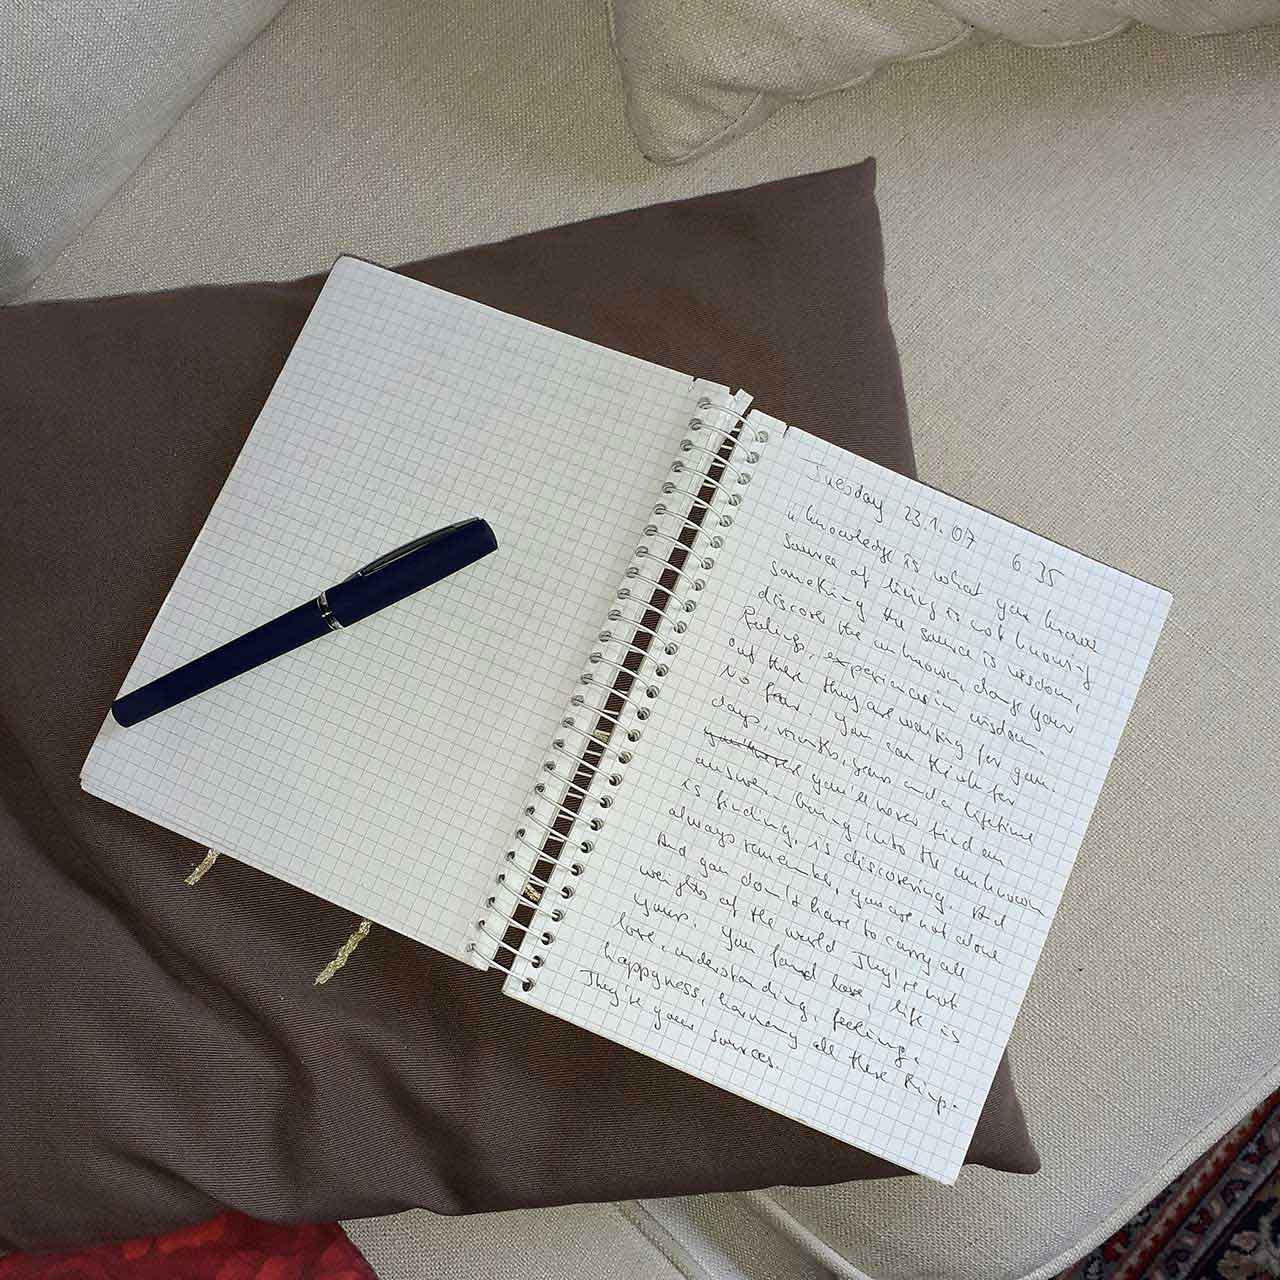 Tuesday 23.1.07 6 35
"knowledge is what you know
source of living is not knowing
something the source is wisdom,
discover the unknown, change your
feelings, experiences in wisdom.
out there they are waiting for you.
No fear. You can think for
days, months, years and a lifetime
you'll never find an
answer. Going into the unknown
is finding, is discovering. And
always remember, you are not alone
And you don't have to carry all
weights of the world They're not
yours. You found love, life is
love, understanding, feeling,
happyness, harmony all these things.
They're your sources.